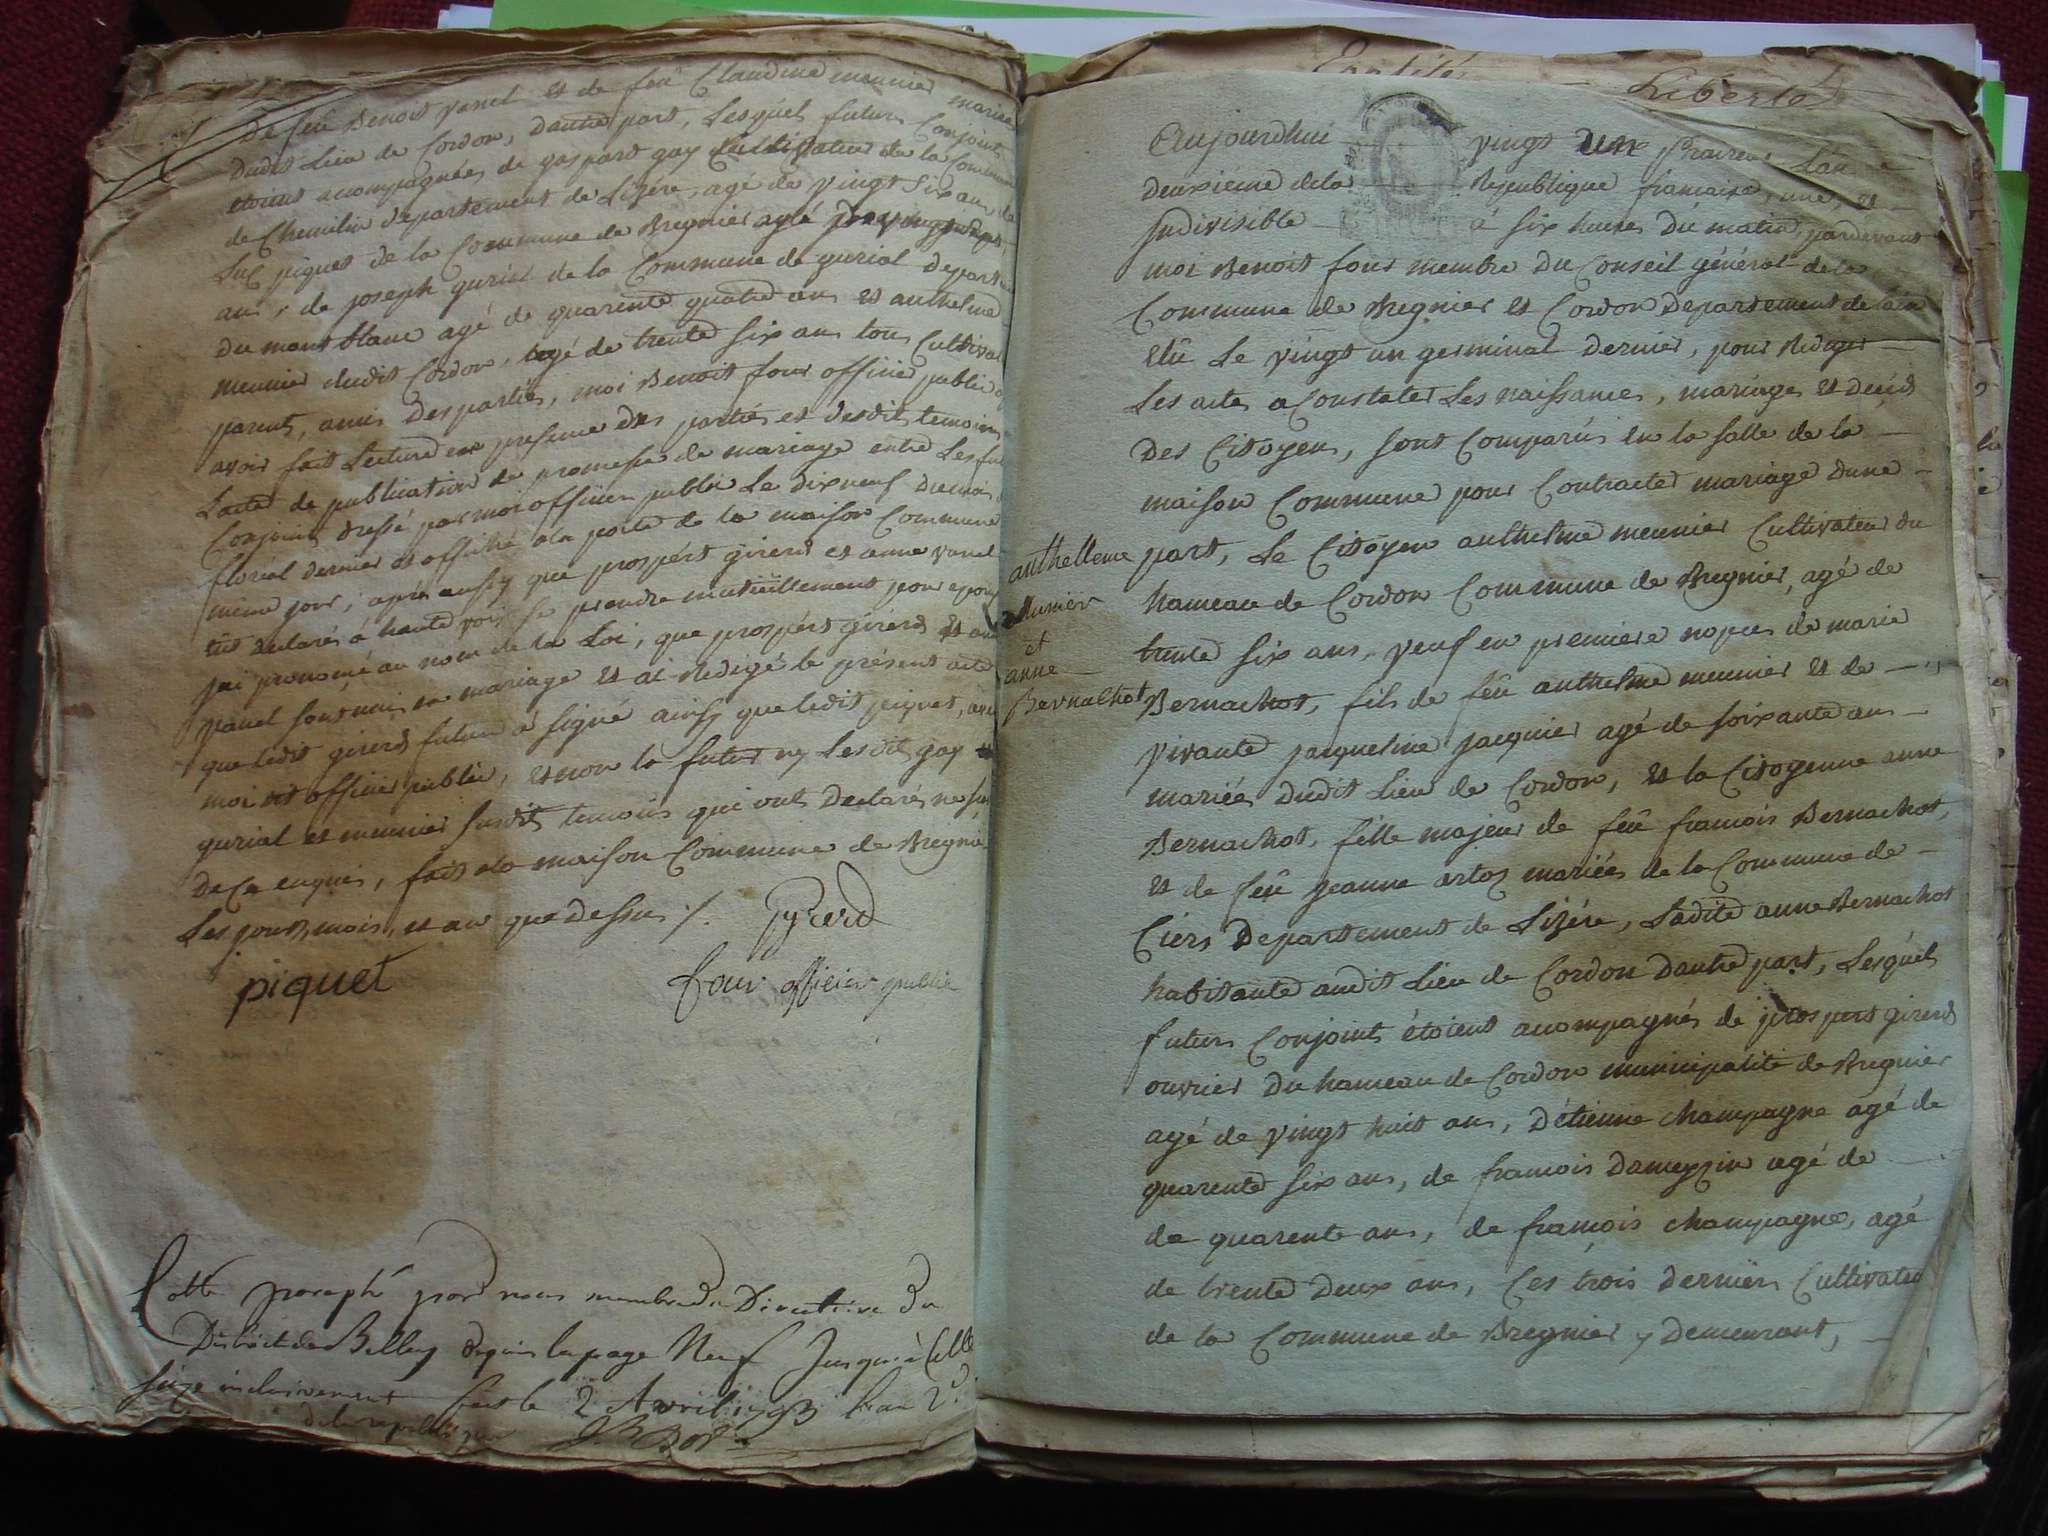 De feu Benoit vanel et de feu Claudine meunier mariés
dudit Lieu de Cordon, dautre part, Lesquels futurs Conjoints
étoient acompagnés de gaspard gay Cultivateur de la Commune
de Chemilin département de Lizére, agé de vingt six ans, de
Luc piquet de la Commune de Bregnier agé
ans, de joseph guriel de la Commune de gurial départ
du mont blanc agé de quarente quatre ans et anthelme
meunier dudit Cordon, agé de trente six ans tous Cultivat
parents, amis des partiés, moi Benoit four officier public a
avoir fait Lecture en presence des partiés et desdits temoins
Lacte de publication de promesse de mariage entre Les fu
Conjoints dressé par moi officier public Le dixneuf du mois
floréal dernier et affiché ala porte de la maison Commune
même jour, après aussy que prospért girerd et anne vanel
ont declarés à haute voix se prendre mutuéllement pour epoux
jai prononcé au nom de la Loi, que prospért girerd et ane
vanel sont unis en mariage et ai redigé le présent acte
que ledit girerd futur à signé ainsy que ledit piquet, avec
moi dit officier public, et non la future ny Lesdits gay
gurial et meunier susdits temoins qui ont declarés ne sa
De Ce enquis, fait ala maison Commune de Bregnier
Les jour, mois, et an que dessus ./. Gyrerd
piquet four officier public
Cotté paraphé par nous membre du Directoire du
District de Belley depuis la page Neuf Jusqu'à Celle
seize inclusivement fait le 2 Avril 1793 l'an 2e
de la republique
Egalité Liberté
Aujourdhui vingt un prairial Lan
deuxieme de la République francaise, une, et
indivisible à six heures du matin pardevant
moi Benoit four membre du Conseil général de la
Commune de Bregnier et Cordon Departement de Lain
élû Le vingt un germinal dernier, pour Rediger
Les actes a Constater Les naissances, mariages et decès
Des Citoyens, sont Comparûs en la salle de la
maison Commune pour Contracter mariage dune
part, Le Citoyen anthelme meunier Cultivateur du
anthelleme
hameau de Cordon Commune de Bregnier, agé de
Munier
trente six ans, veuf en premiere nopces de marie
et
anne
Bernachot, fils de feu anthelme meunier et de
Bernachot
vivante jacqueline jacquier agé de soixante ans
mariés dudit Lieu de Cordon, et la Citoyenne anne
Bernachot, fille majeur de feu francois Bernachot,
et de feû jeanne artoz mariés de la Commune de
Ciers Departement de Lizére, Ladite anne Bernachot
habitante audit Lieu de Cordon dautre part, Lesquels
futurs Conjoints étoient acompagnés de prospert girerd
ouvrier du hameau de Cordon municipalité de Bregnier
agé de vingt huit ans, détienne champagne agé de
quarente six ans, de francois Dameyzin agé de
de quarente ans, de francois champagne, agé
de trente deux ans, Ces trois derniers Cultivateu
de la Commune de Bregnier y demeurant,